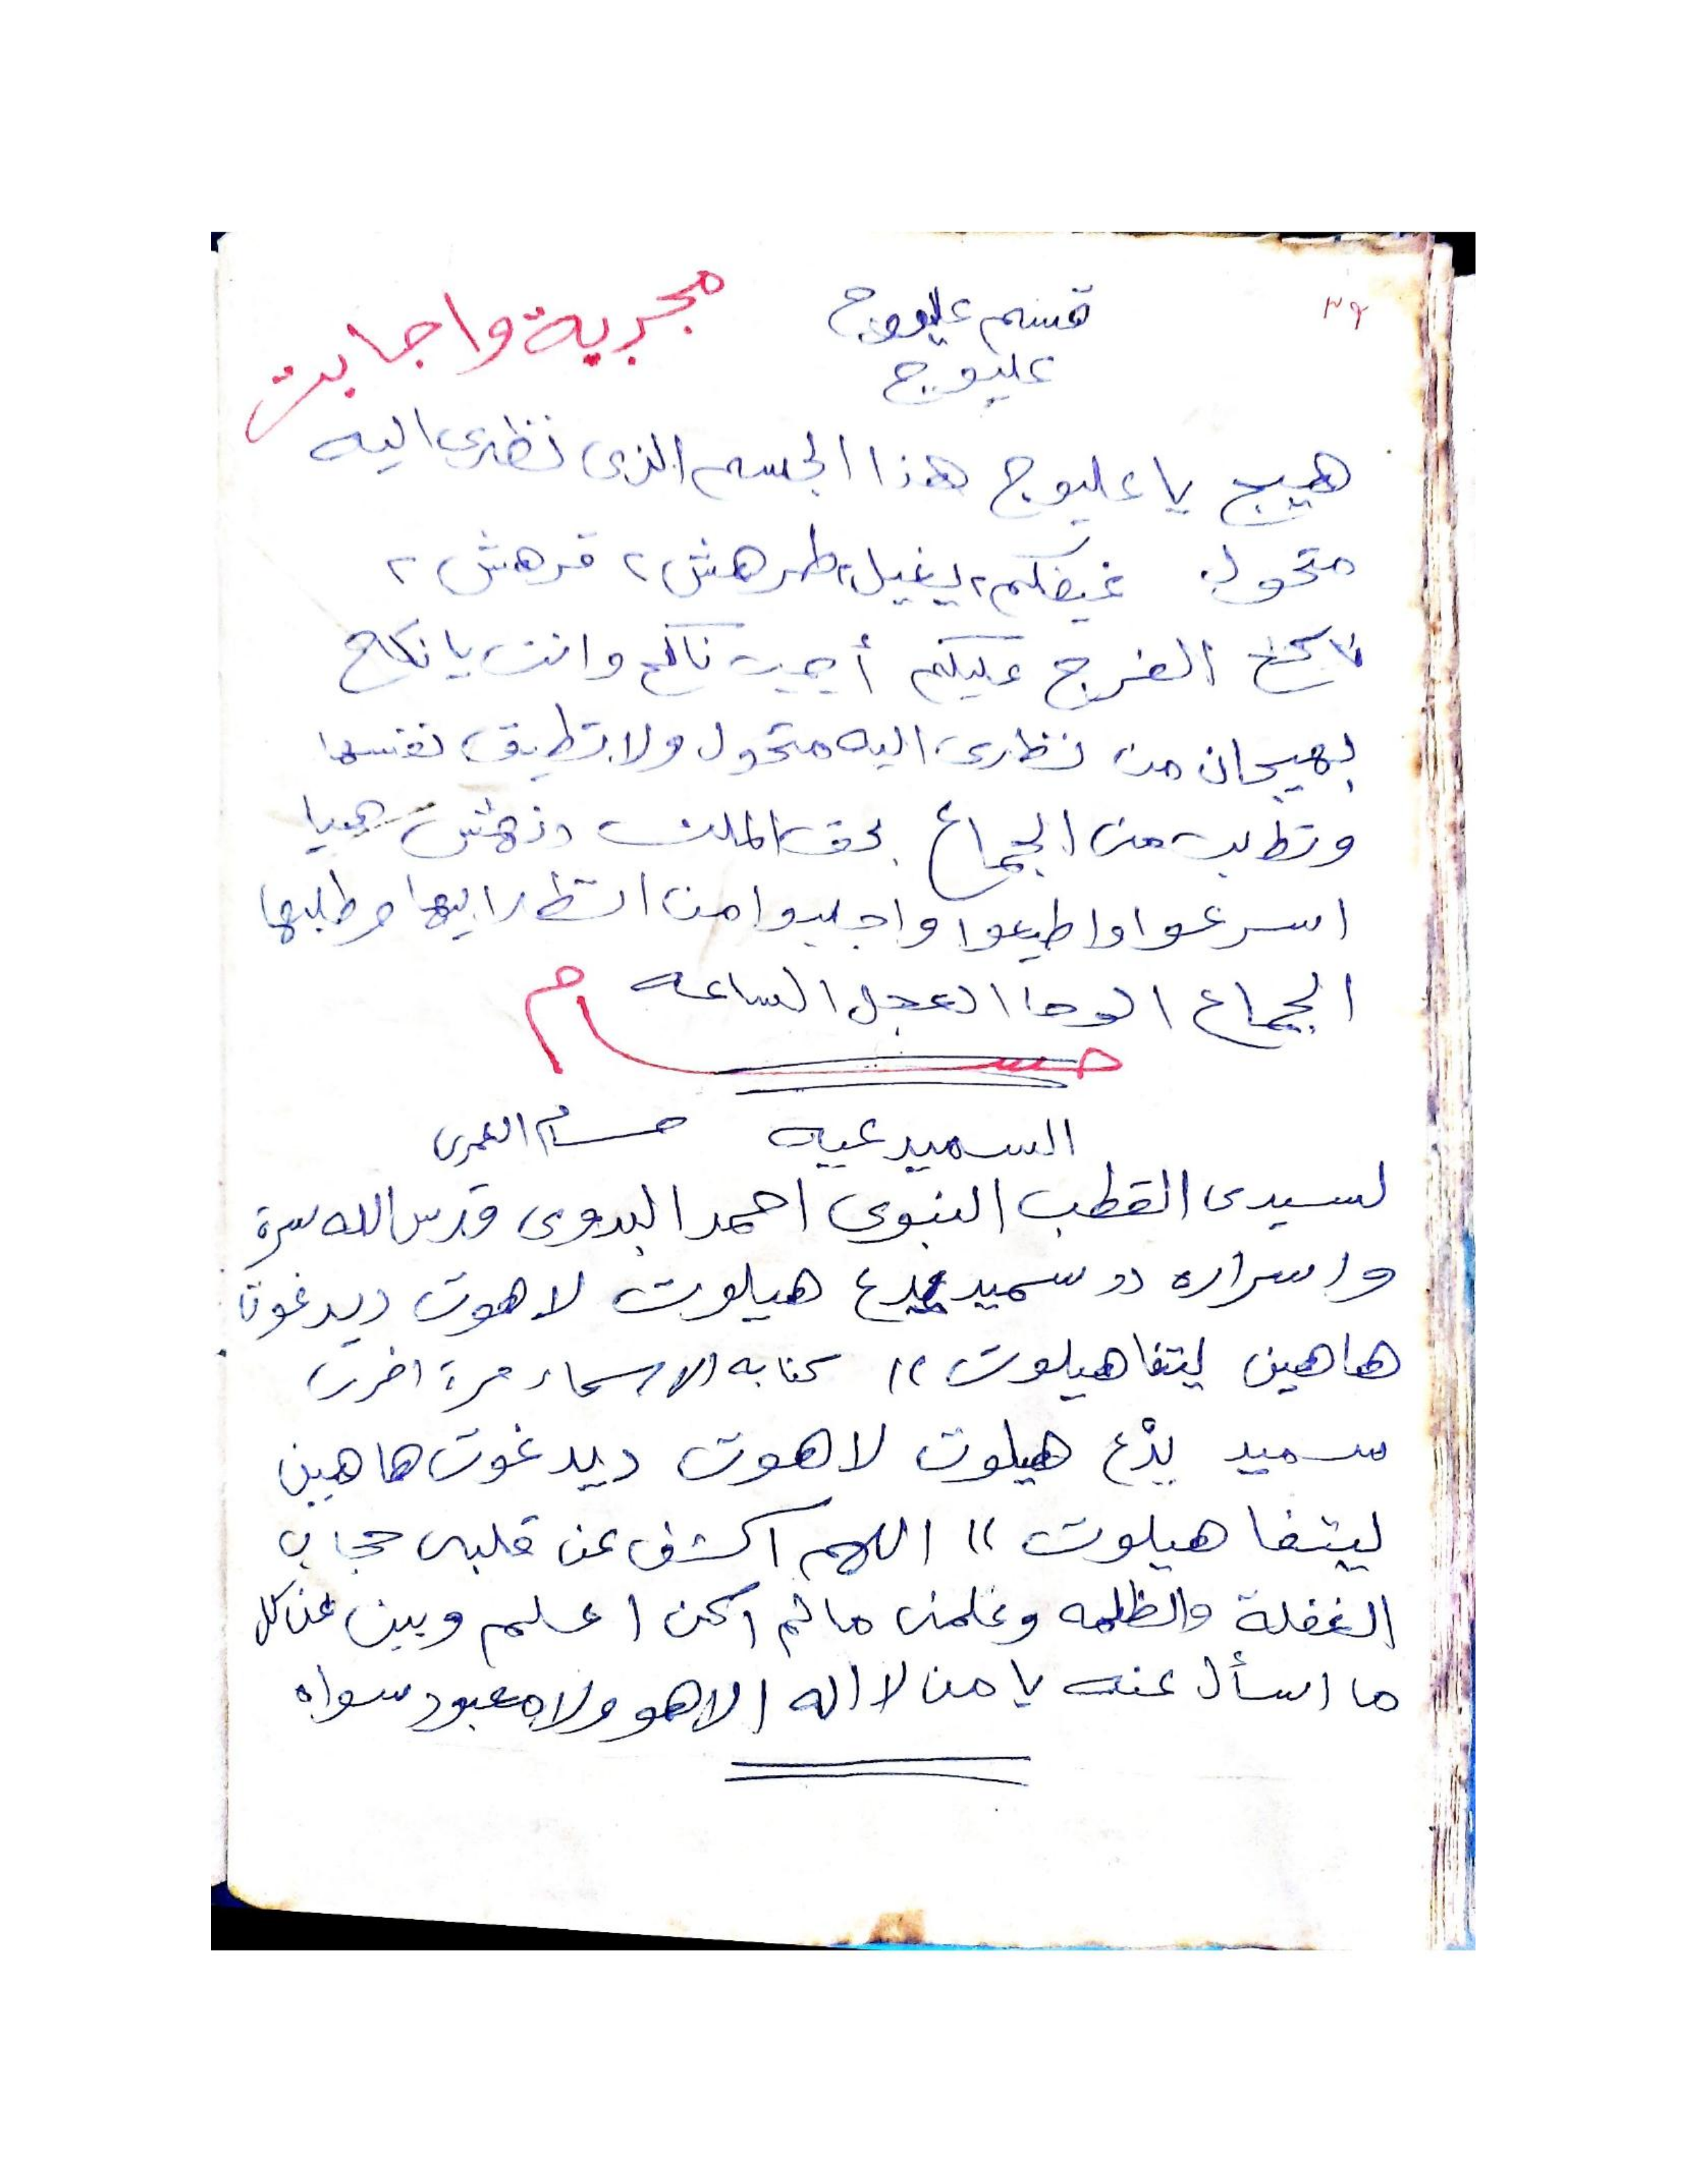 ٣٩
قسم عليووج مجربة واجابت
عليوج
هيج يا عليوج هذا الجسم الذى نظرى اليه
متحول طرهش ٢ قرهش ٢
ناكح الفرج عليكم أجيب ناكح وانت يا نكاح
بهيجان من نظرى اليه متحول ولا تطيق نفسها
وتطلب من الجماع بحق الملك هيا
اسرعوا واطيعوا واجلبوا من انظر اليها وطلبها
الجماع الوحا العجل الساعه
حسام
السميدعيه حسام العمرى
لسيدى القطب النبوى احمد البدوى قدس الله سرة
واسراره دد سميد يدع هيلوت لاهوت ديدغوتا
هاهين ليتفا هيلوت )) كتابه الاسماء مرة اخرى
سميد يدْع هيلوت لاهوت ديدغوت هاهين
ليتفا هيلوت )) اللهم اكشف عن قلبى حجاب
الغفلة والظلمه وعلمنى مالم اكن اعلم وبين عن كل
ما اسأل عنه يا من لا اله الا هو ولا معبود سواه